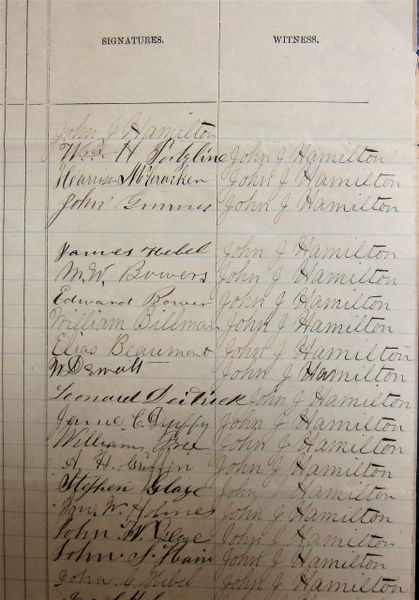 SIGNATURES. WITNESS.
John J Hamilton
Wm H John J Hamilton
Harrison McCracken John J Hamilton
John Grimes John J Hamilton
James Hebel John J Hamilton
M. W. Bowers John J Hamilton
Edward Bower John J Hamilton
William Billman John J Hamilton
Elias Beaumont John J Hamilton
John J Hamilton
Leonard John J Hamilton
C. Duffy John J Hamilton
William John J Hamilton
A. H. Griffin John J Hamilton
Stephen Glace John J Hamilton
Wm. W. Holmes John J Hamilton
John W. Glace John J Hamilton
John S. Hain John J Hamilton
John Hebel John J Hamilton
John J Hamilton